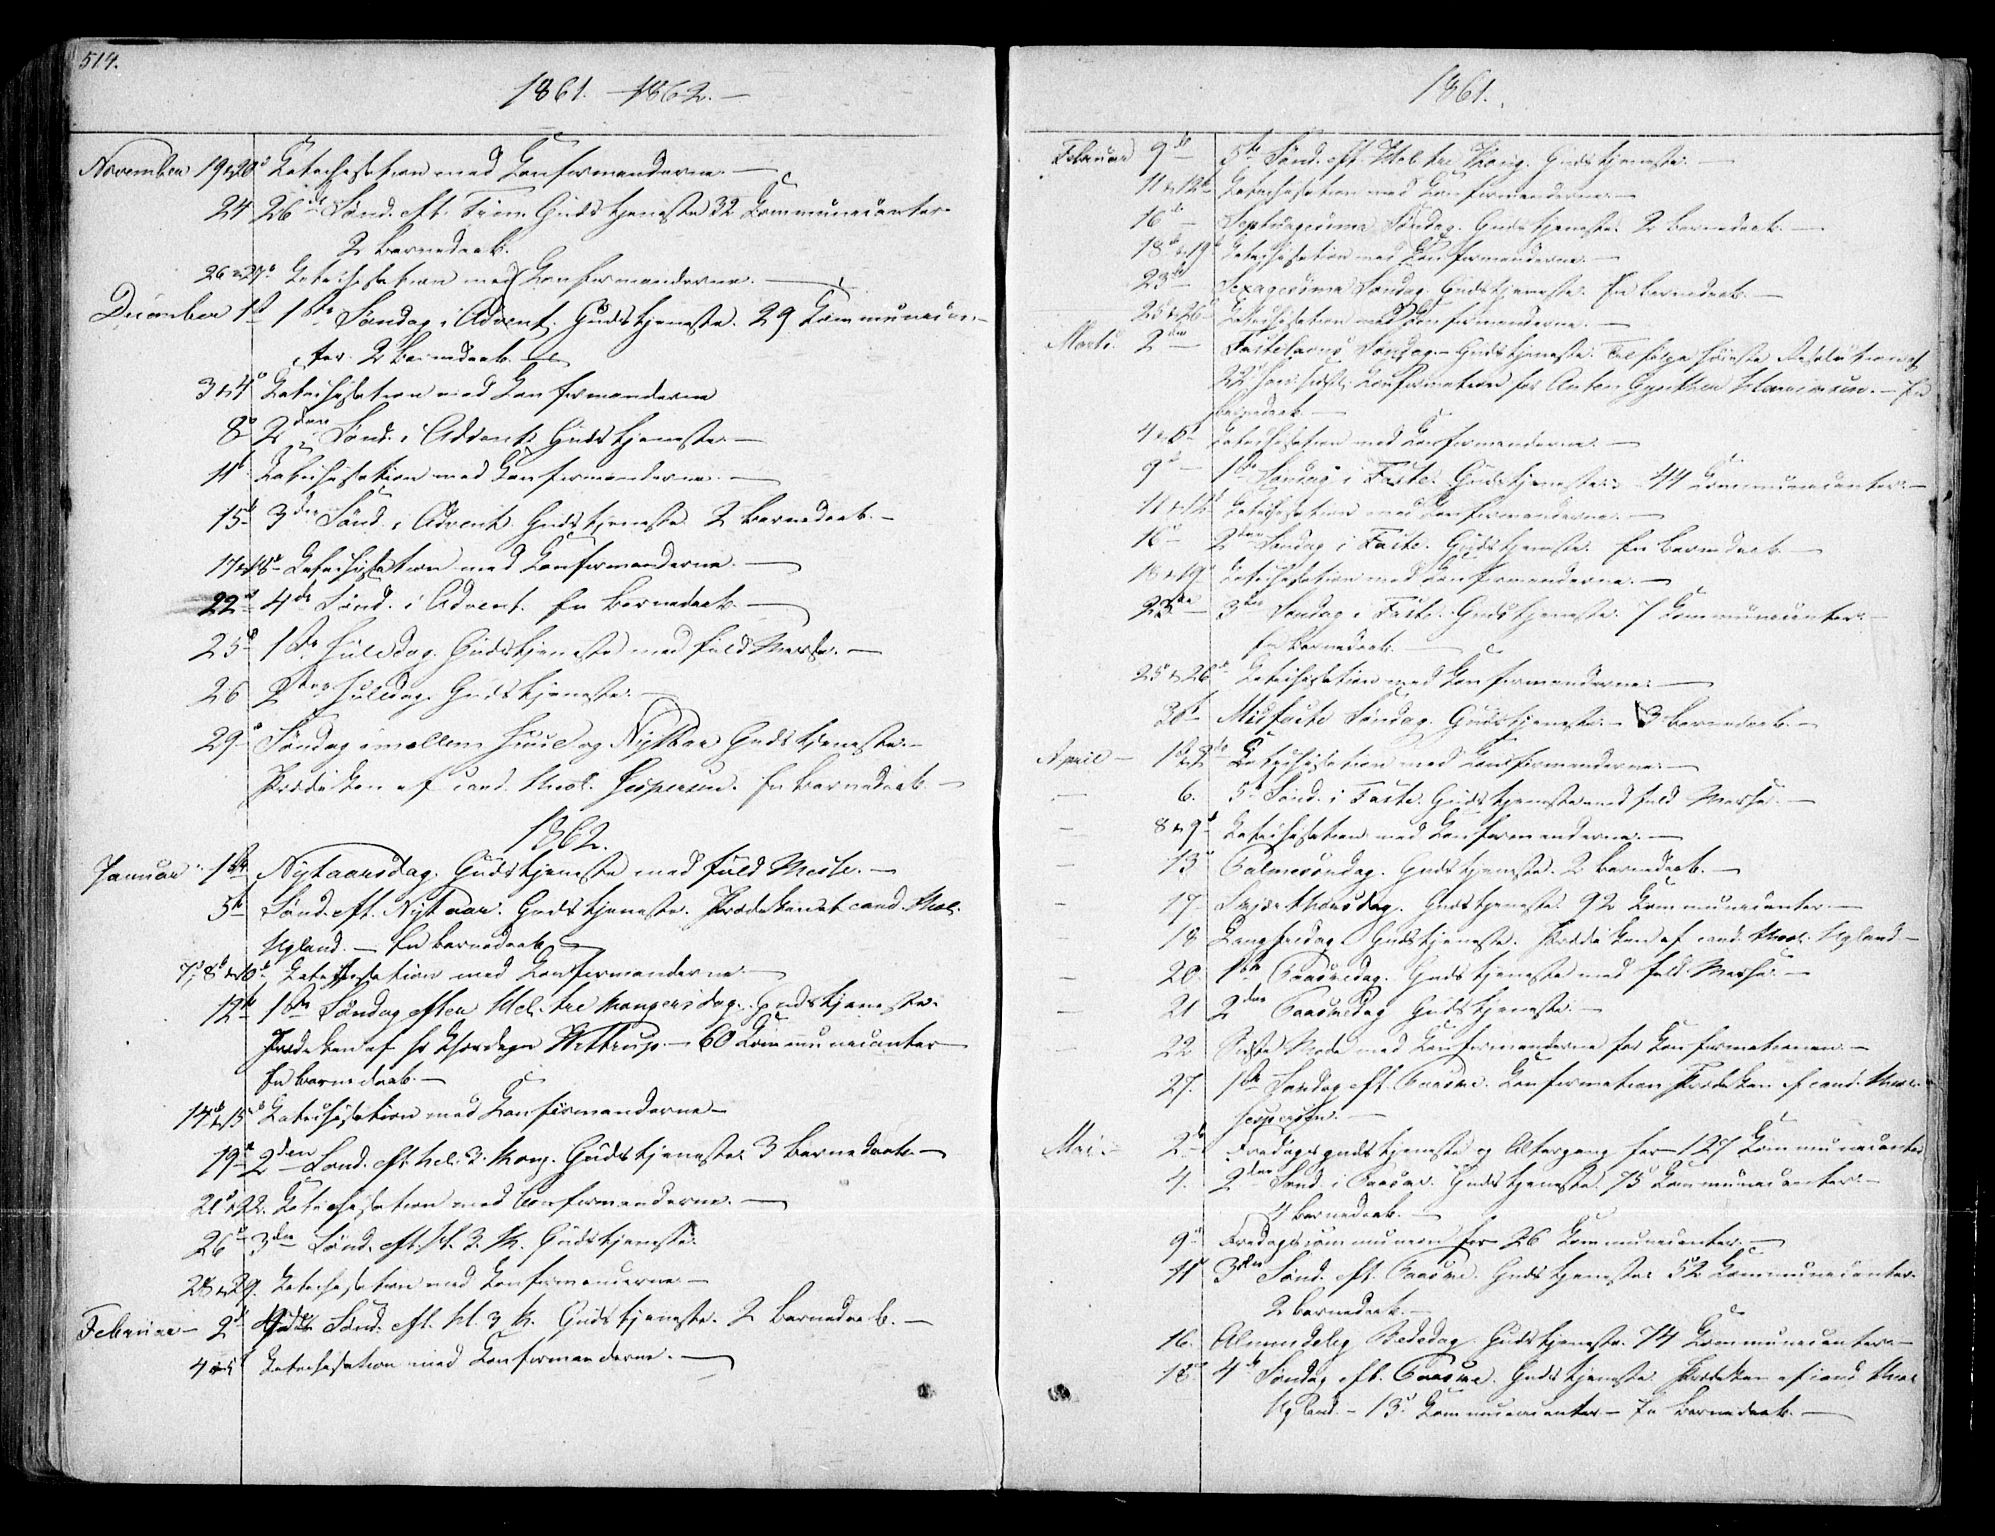 514.
1861. - 1862. -
November 19 & 20d Catechisation med Confirmanderne. -
24 26de Sønd. eft. Trin. Gudstjeneste 32 Communicanter
2 Barnedaab.
26 & 27d Catechisation med Confirmanderne. -
December 1ste 1ste Søndag i Advent. Gudstjeneste. 29 Communican-
ter. 2 Barnedaab. -
3 & 4d Catechisation med Confirmanderne
8d 2den Sønd. i Advent. Gudstjeneste. -
11te Catechisation med Confirmanderne. -
15d 3die Sønd. i Advent Gudstjeneste. 2 Barnedaab. -
17 & 18d Catechisation med Confirmanderne. -
22d 4de Sønd. i Advent. En Barnedaab. -
25d 1ste Juledag. Gudstjeneste med fuld Messe. -
26 2den Juledag. Gudstjeneste. -
29d Søndag imellem Juul og Nytaar Gudstjeneste. -
Prædiken af cand. theol. Jespersen. En Barnedaab. -
1862.
Januar 1ste Nytaarsdag. Gudstjeneste med fuld Messe. -
5te Sønd. eft. Nytaar. Gudstjeneste. Prædiken af cand. theol.
Ugland. - En Barnedaab -
7d, 8d & 10d Catechisation med Confirmanderne. -
12te 1ste Søndag efter Hel. tre Kongersdag. Gudstjeneste.
Prædiken af Hr Wittrup. - 60 Communicanter
En Barnedaab. -
14d & 15d Catechisation med Confirmanderne -
19d 2den Sønd. eft. hel. 3. Kong. Gudstjeneste 3 Barnedaab. -
21d & 22. Catechisation med Confirmanderne. -
26d 3die Sønd. eft. H. 3. K. Gudstjeneste.
28 & 29. Catechisation med Confirmanderne. -
Februar - 2d 4de Sønd. eft. H. 3 K. Gudstjeneste. 2 Barnedaab. -
4 & 5d Catechisation med Confirmanderne. -
1861.
Februar 9de 5te Sønd. eft. Hel. tre Kong. Gudstjeneste. -
11 & 12te Catechisation med Confirmanderne. -
16de Septuagesima Søndag. Gudstjeneste. 2 Barnedaab. -
18d & 19d Catechisation med Confirmanderne. -
23de Sexagesima Søndag. Gudstjeneste. En Barnedaab. -
25 & 26d Catechisation med Confirmanderne. -
Marts. 2den Fastelavns Søndag. - Gudstjeneste. Ifølge høieste Resolution af
22 Confirmation for Anton - En
Barnedaab -
4 & 5d Catechisation med Confirmanderne. -
9d - 1ste Søndag i Faste. Gudstjeneste. - 44 Communicanter. -
11 & 12 Catechisation med Confirmanderne. -
16d 2den Søndag i Faste. Gudstjeneste. En Barnedaab. -
18 & 19d Catechisation med Confirmanderne. -
23de 3die Søndag i Faste. Gudstjeneste. 7 Communicanter. -
En Barnedaab. -
25d & 26d Catechisation med Confirmanderne. -
30te Midfaste Søndag. Gudstjeneste. - 3 Barnedaab. -
April - 1ste & 2den Catechisation med Confirmanderne. -
- 6. 5te Sønd. i Faste. Gudstjeneste med fuld Messe. -
- 8 & 9d Catechisation med Confirmanderne. -
- 13d Palmesøndag. Gudstjeneste. 2 Barnedaab. -
- 17 Skjærthorsdag. Gudstjeneste. 92 Communicanter. -
- 18 Langfredag Gudstjeneste. Prædiken af cand. theol. Ugland -
- 20. 1ste Paaskedag. Gudstjeneste med fuld Messe. -
- 21 2den Paaskedag Gudstjeneste. -
- 22 Sidste Møde med Confirmanderne før Confirmationen. -
27. 1ste Søndag eft. Paaske. Confirmation Prædiken af cand. theol.
Jespersen. -
Mai. - 2d Fredagsgudstjeneste og Altergang for 127 Communicanter
4. 2den Sønd. i Paaske. Gudstjeneste. 75 Communicanter. -
4 Barnedaab. -
9d Fredagscommunion for 26 Communicanter. -
11d 3die Sønd. eft. Paaske. Gudstjeneste 52 Communicanter.
2 Barnedaab. -
16. Almindelig Bededag. Gudstjeneste. 74 Communicanter -
18d 4de Søndag eft. Paaske. Gudstjeneste. Prædiken af cand. theol
Ugland. - 13 Communicanter - En Barnedaab. -